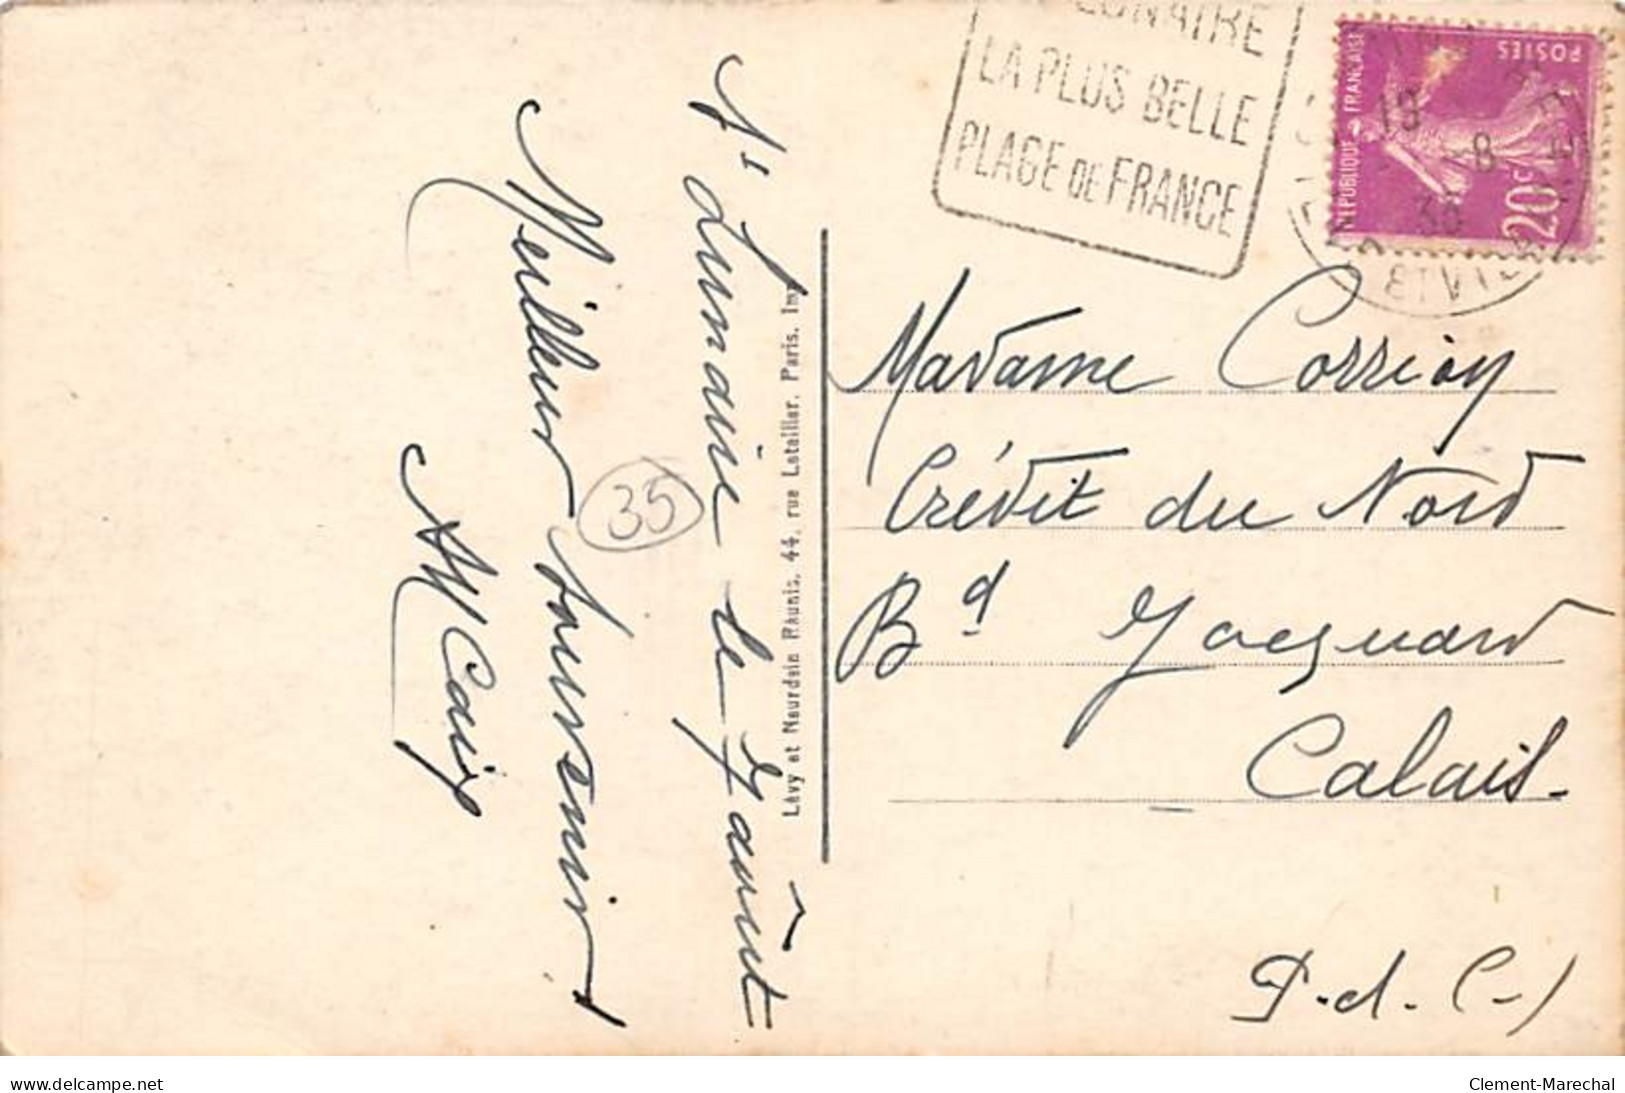 LA PLUS BELLE
PLAGE DE FRANCE
POSTES
REPUBLIQUE FRANÇAISE
20c
18
8
St Lunaire le 7 août
Meilleur souvenir
35
Lévy et Neurdein Réunis, 44, rue Letellier, Paris. Imp
Madame
Crédit du Nord
Bd Jacquard
Calais.
P.d.C-)
www.delcampe.net
Clement-Marechal